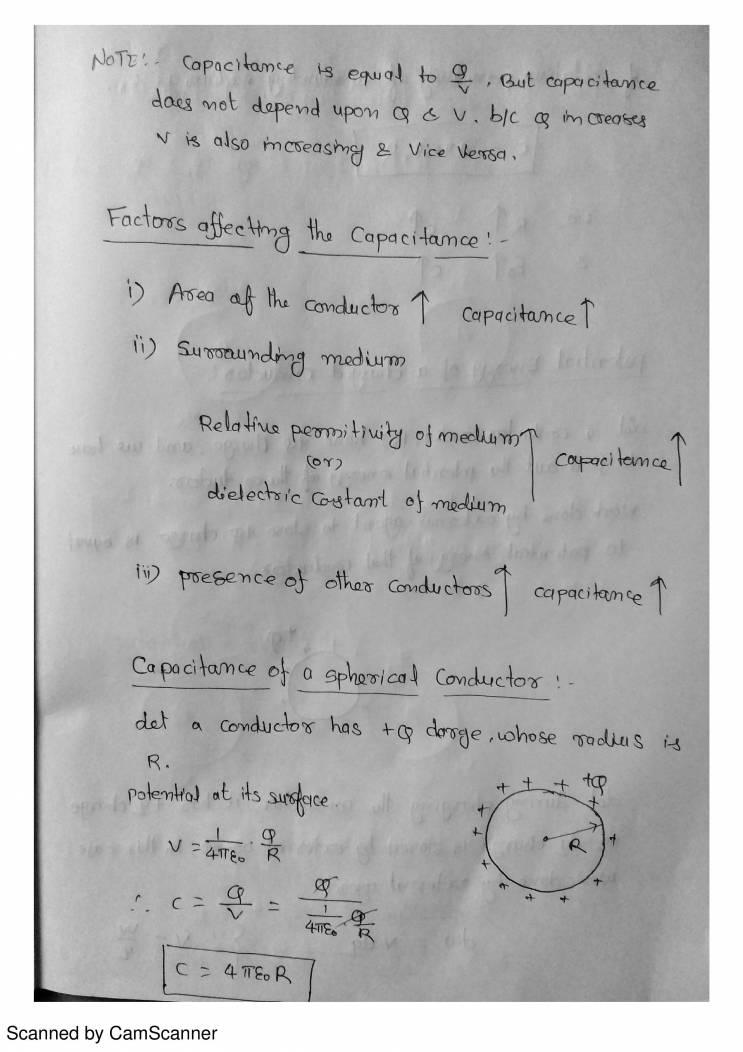 NOTE:- Capacitance is equal to Q/V, But capacitance
does not depend upon Q & V. b/c Q increases
V is also increasing & Vice Versa.
Factors affecting the Capacitance:-
i) Area of the conductor ↑ capacitance ↑
ii) Surrounding medium
Relative permitivity of medium ↑ capacitance ↑
(or)
dielectric Costant of medium
iii) presence of other conductors ↑ capacitance ↑
Capacitance of a spherical Conductor:-
det a conductor has +Q darge, whose radius is
R.
potential at its surface
V = 1/4πε₀ · Q/R
+ + + +Q
+ + + + + + + + +
R
∴ C = Q/V = Q / (1/4πε₀ Q/R)
C = 4πε₀R
Scanned by CamScanner